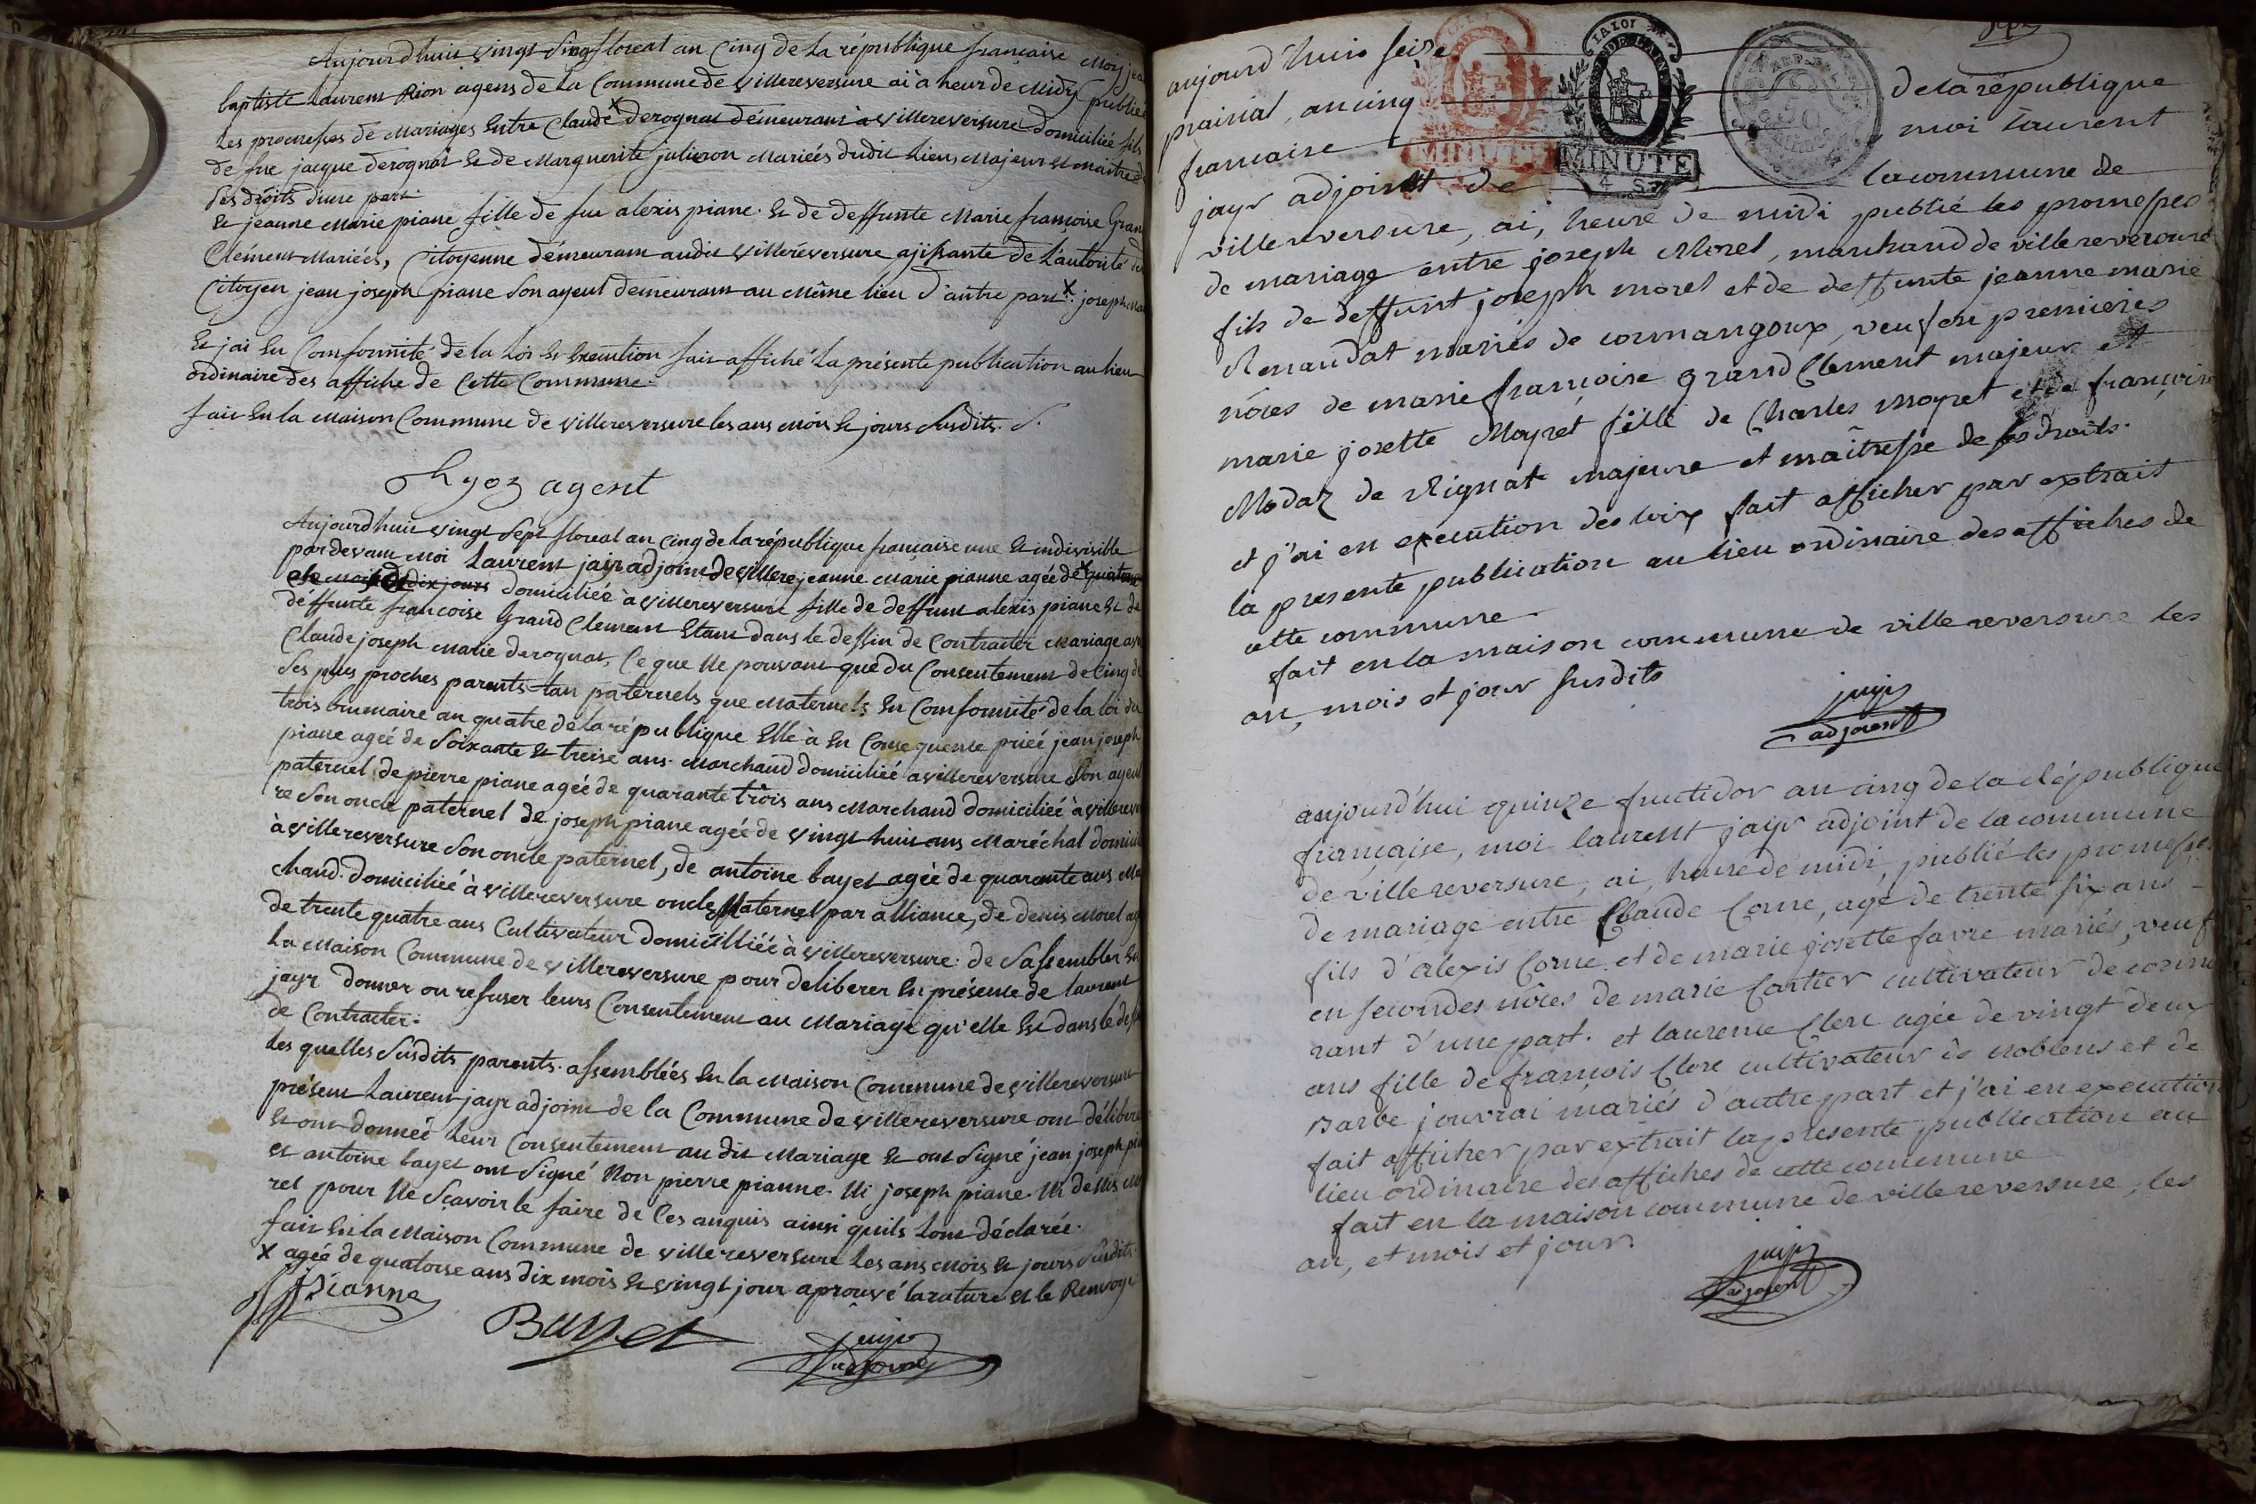 Aujourdhuit vingt Sinq floreal an Cinq de la république française Moy jea
baptiste Laurent Rion agens de la Commune de villereversure ai à heur de Midy publiée
les promesses de Mariages Entre Claude x Derognat démeurant à villereversure domiciliée fils
de fue jacque Derognat Et de Marguerite julieron Mariées dudit Lieu, Majeur Et Maitre de
Ses droits d'une part
Et jeanne Marie piane fille de fue alexis piane. Et de deffunte Marie françoise Gran
Clément Mariées, Citoyenne démeurant audit villereversure agissante de L'autorité du
Citoyen jean joseph piane Son ayeul demeurant au Même lieu D'autre part x. joseph Ma
Et jai En Conformité de la Loi Et Execution fait affiché La présente publication au lieu
ordinaire des affiche de Cette Commune.
fait En la Maison Commune de villereversure les ans Mois Et jours Susdits.
agent
Aujourdhuit vingt Sept floreal an Cinq de la république française une Et indivisible
pardevant Moi Laurent jayr adjoint de villere jeanne Marie pianne agée de x quatorze
dix jours domiciliée à villereversure fille de deffunt alexis piane Et de
déffunte francoise Grand Clement Etant dans le dessin de Contracter Mariage av
Claude joseph Marie derognat, Ce que Ne pouvant que du Consentement de Cinq de
Ses plus proches parents tan paternels que Maternels En Conformité de la loi du
trois brumaire an quatre de la république Elle à En Consequense priée jean joseph
piane agée de Soixante Et treise ans. Marchand domiciliée a villereversure Son ayeul
paternel, de pierre piane agée de quarante trois ans Marchand domiciliée à villerever
re Son oncle paternel de joseph piane agée de vingt huit ans Maréchal domicili
à villereversure Son oncle paternel, de antoine bayet agée de quarante ans Ma
chand. domiciliée à villereversure oncle Maternel par alliance, de denis Morel ag
de trente quatre ans Cultivateur domicilliée à villereversure. de Sassembler En
la Maison Commune de villereversure pour deliberer En présense de laurent
jayr donner ou refuser leurs Consentement au Mariage qu'elle Est dans le dess
de Contracter.
les quelles Susdits parents. assemblées En la Maison Commune de villereversure
présent Laurent jayr adjoint de la Commune de villereversure ont déliberé
Et ont donneé Leur Consentement au dit Mariage Et ont Signé jean joseph pia
et antoine bayet ont Signé Non pierre pianne. Ni joseph piane. Ni denis Mo
rel pour Ne Sçavoir le faire de Ces anquis ainsi quils Lont déclarée.
fait En la Maison Commune de villereversure Les ans Mois Et jours Susdits.
x agée de quatorse ans dix mois Et vingt jour aprouvé la rature et le Renvoye
Pianne
Bayet
jayr
adjoint
aujourd'huis seize
prairial, an cinq de la république
francaise moi Laurent
jayr adjoint de la commune de
MINUTE
MINUTE
villereversure, ai, heure de midi publié les promesses
de mariage entre joseph Morel, marchand de villereversure
fils de deffunt joseph morel et de deffunte jeanne marie
Renaudat mariés de cormangoux, veuf en premieres
nôces de marie françoise grand Clement majeur et
marie josette Moyret fille de Charles moyret et de françoise
Modaz de Rignat majeure et maîtresse de ses droits.
et j'ai en execution des loix fait afficher par extrait
la presente publication au lieu ordinaire des affiches de
cette commune
fait en la maison commune de villereversure les
an, mois et jour susdits
jayr
adjoint
aujourd'hui quinze fructidor an cinq de la République
française, moi laurent jayr adjoint de la commune
de villereversure, ai, heure de midi, publié les promesses
de mariage entre Claude Corne, agé de trente six ans
fils d'alexis Corne et de marie josette favre mariés, veuf
en secondes nôces de marie Cartier cultivateur de corme
rant d'une part. et laurence Clerc agée de vingt deux
ans fille de françois Clerc cultivateur de noblens et de
Barbe jouvrai mariés d'autre part et j'ai en execution
fait afficher par extrait la presente publication au
lieu ordinaire des affiches de cette commune
fait en la maison commune de villereversure, les
an, et mois et jour.
jayr
adjoint